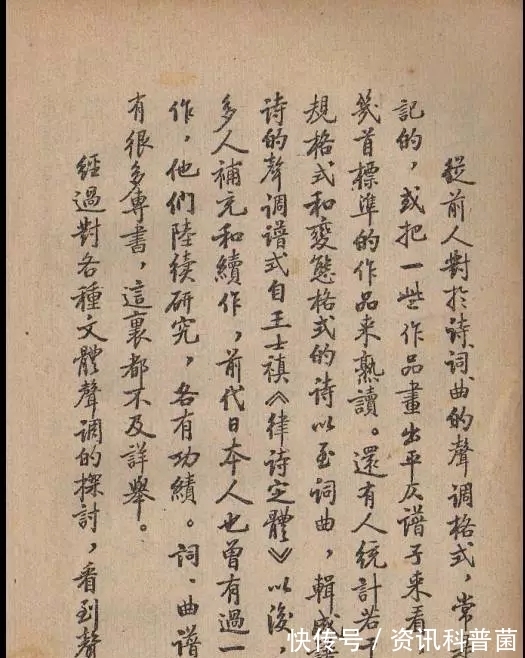 從前人對於诗词曲的聲调格式，常
記的，或把一些作品畫出平仄谱子来看
幾首標準的作品来熟讀。還有人統計若干
規格式和變態格式的诗以至词曲，輯成
诗的聲调谱式自王士禛《律诗定體》以後，
多人補充和續作，前代日本人也曾有過一
作，他們陸续研究，各有功績。词、曲谱
有很多專書，這裏都不及詳舉。
經過對各種文體聲调的探討，看到聲
快传号/资讯科普菌